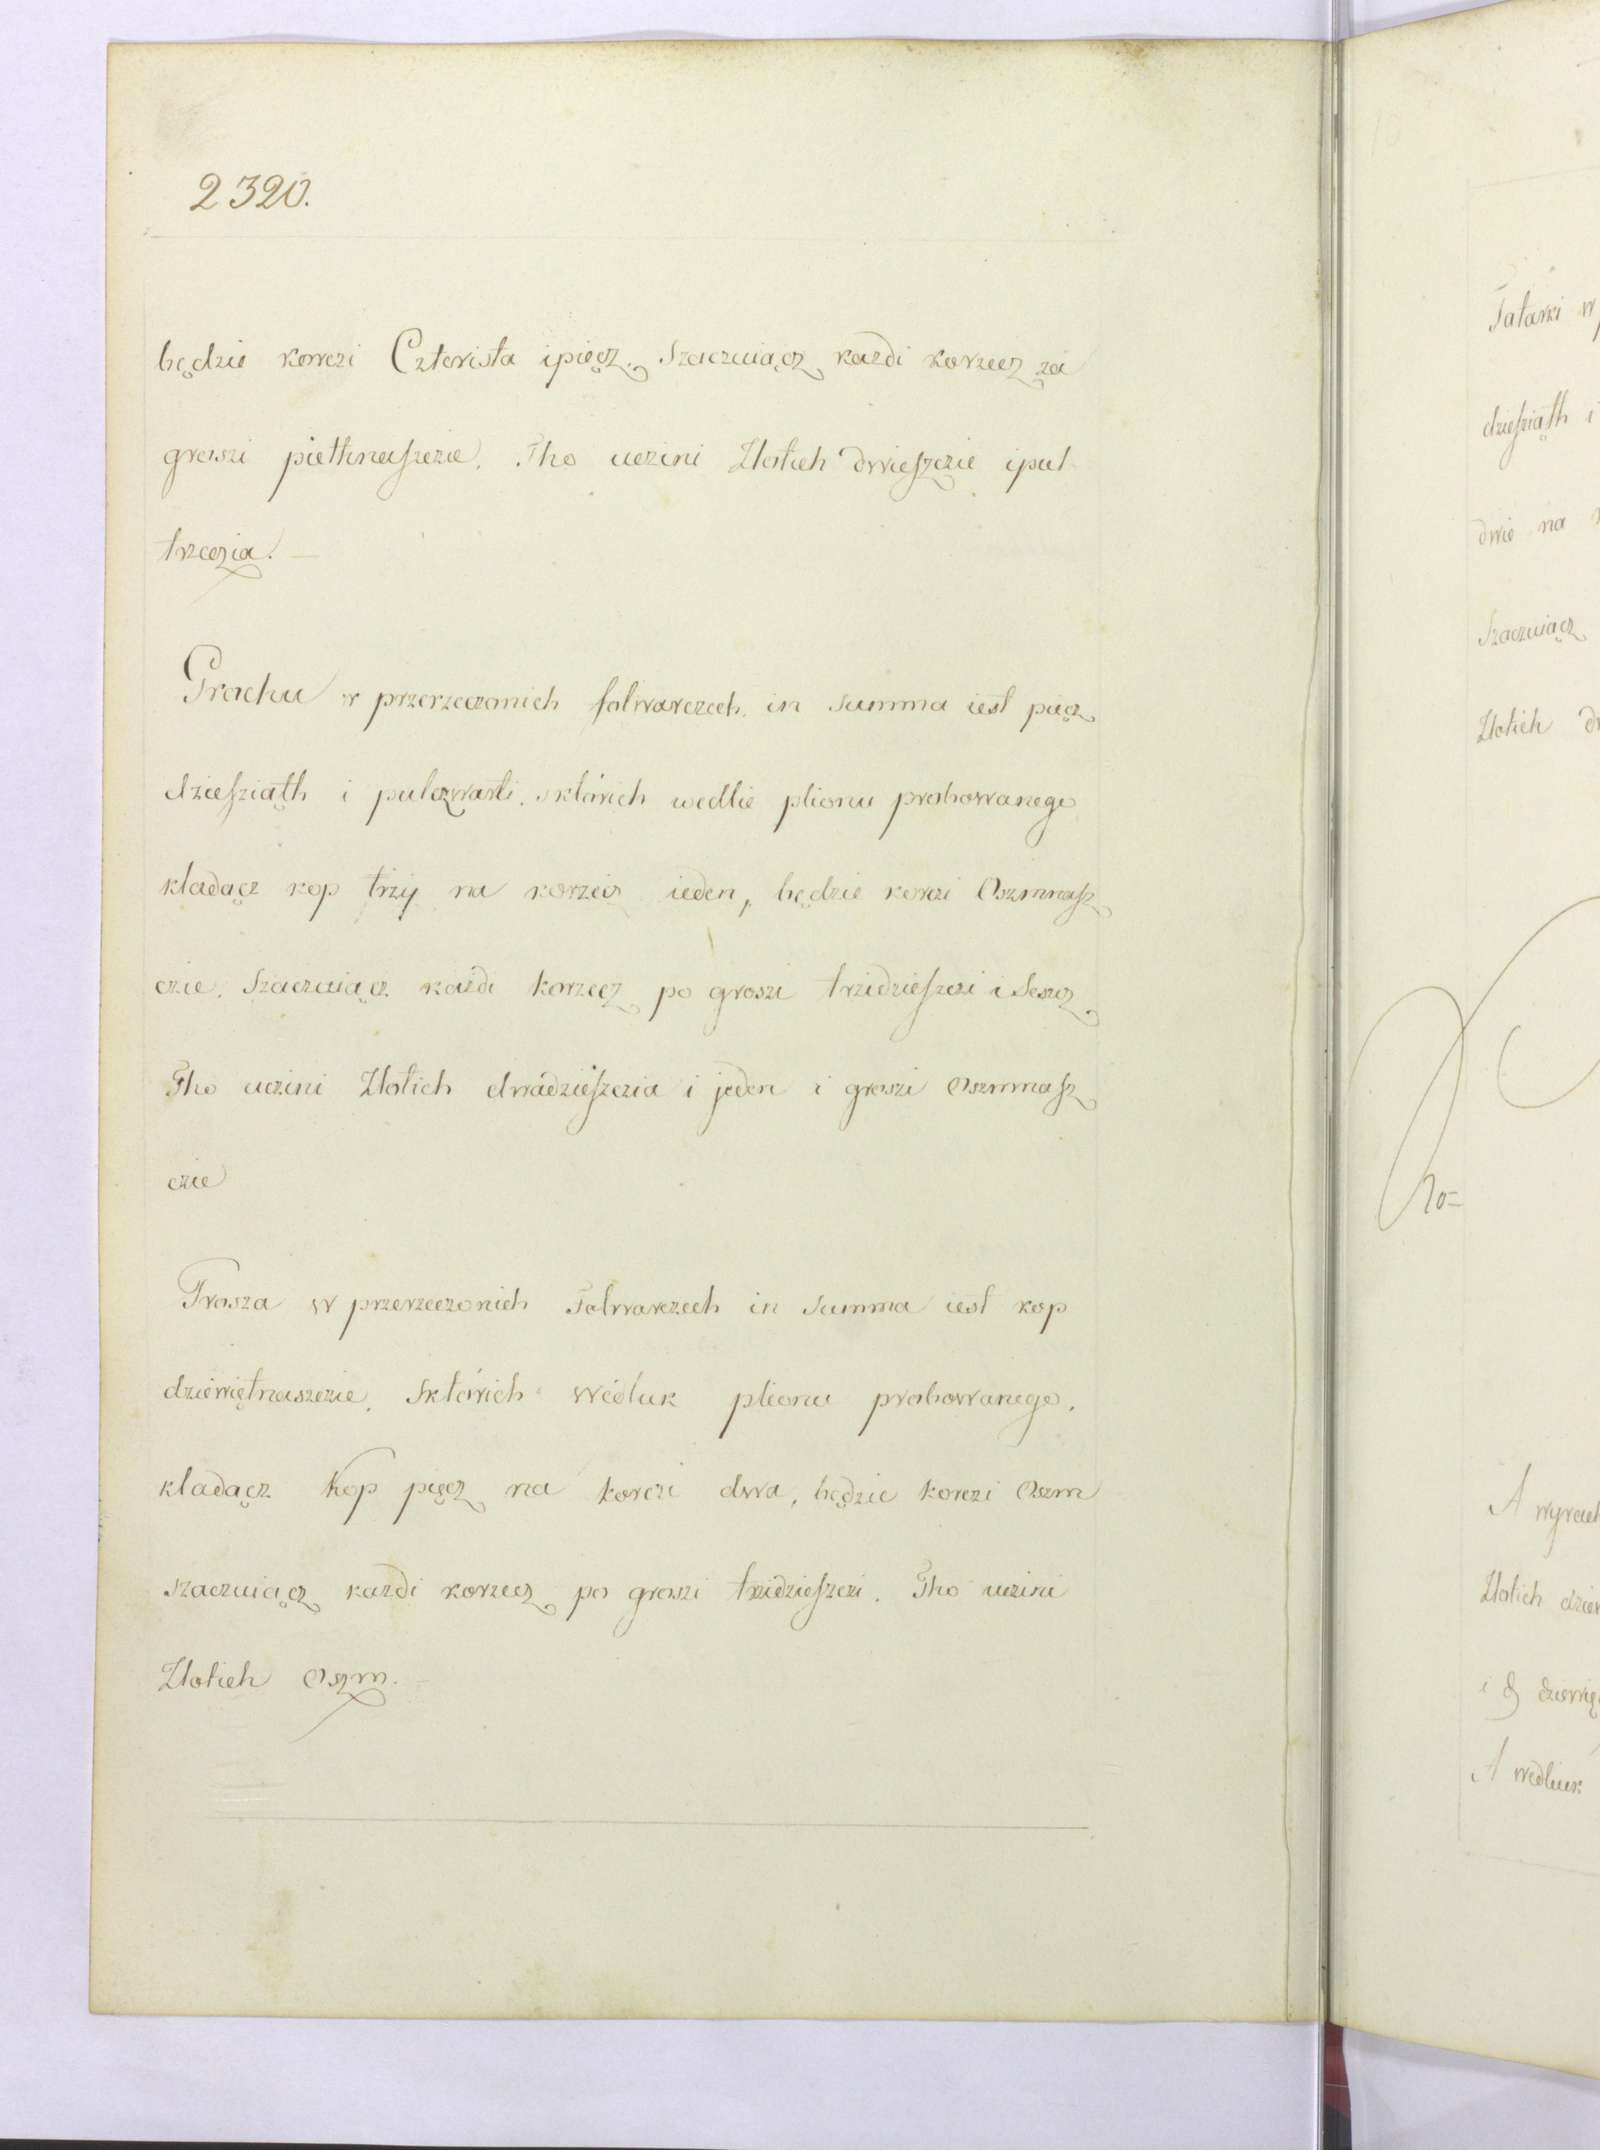 2320.
będzie korczi Czterista ipięcz. Szaczuiącz kazdi korzecz za
groszi piethnaſzczie. Tho uczini Zlotich dwieſzczie ipul
trzeczia.
Grochu w przerzeczonich folwarczech in summa iest pięcz
dzieſziąth i pulczwarti. sktórich wedlie plionu probowanego
kladącz kop trzy na korzecz ieden, będzie korczi Oszmnaſz
czie. Szaczuiącz kazdi korzecz po groszi trzidzieſzczi i Szescz
Tho uczini Zlotich dwadzieſzczia i jeden i groszi oszmnaſz
czie
Prosza w przerzeczonich Folwarczech in summa iest kop
dziewiętnaszczie. Sktórich wedluk plionu probowanego.
kladącz kop pięcz na korczi dwa, będzie korczi Oszm
szaczuiącz kazdi korzecz po groszi trzidzieſzczi. Tho uczini
Zlotich oszm.
Tatarki w
dzieſziąth i
dwie na
Szaczuiącz
Zlotich
A
Zlotich
i
A wedluk